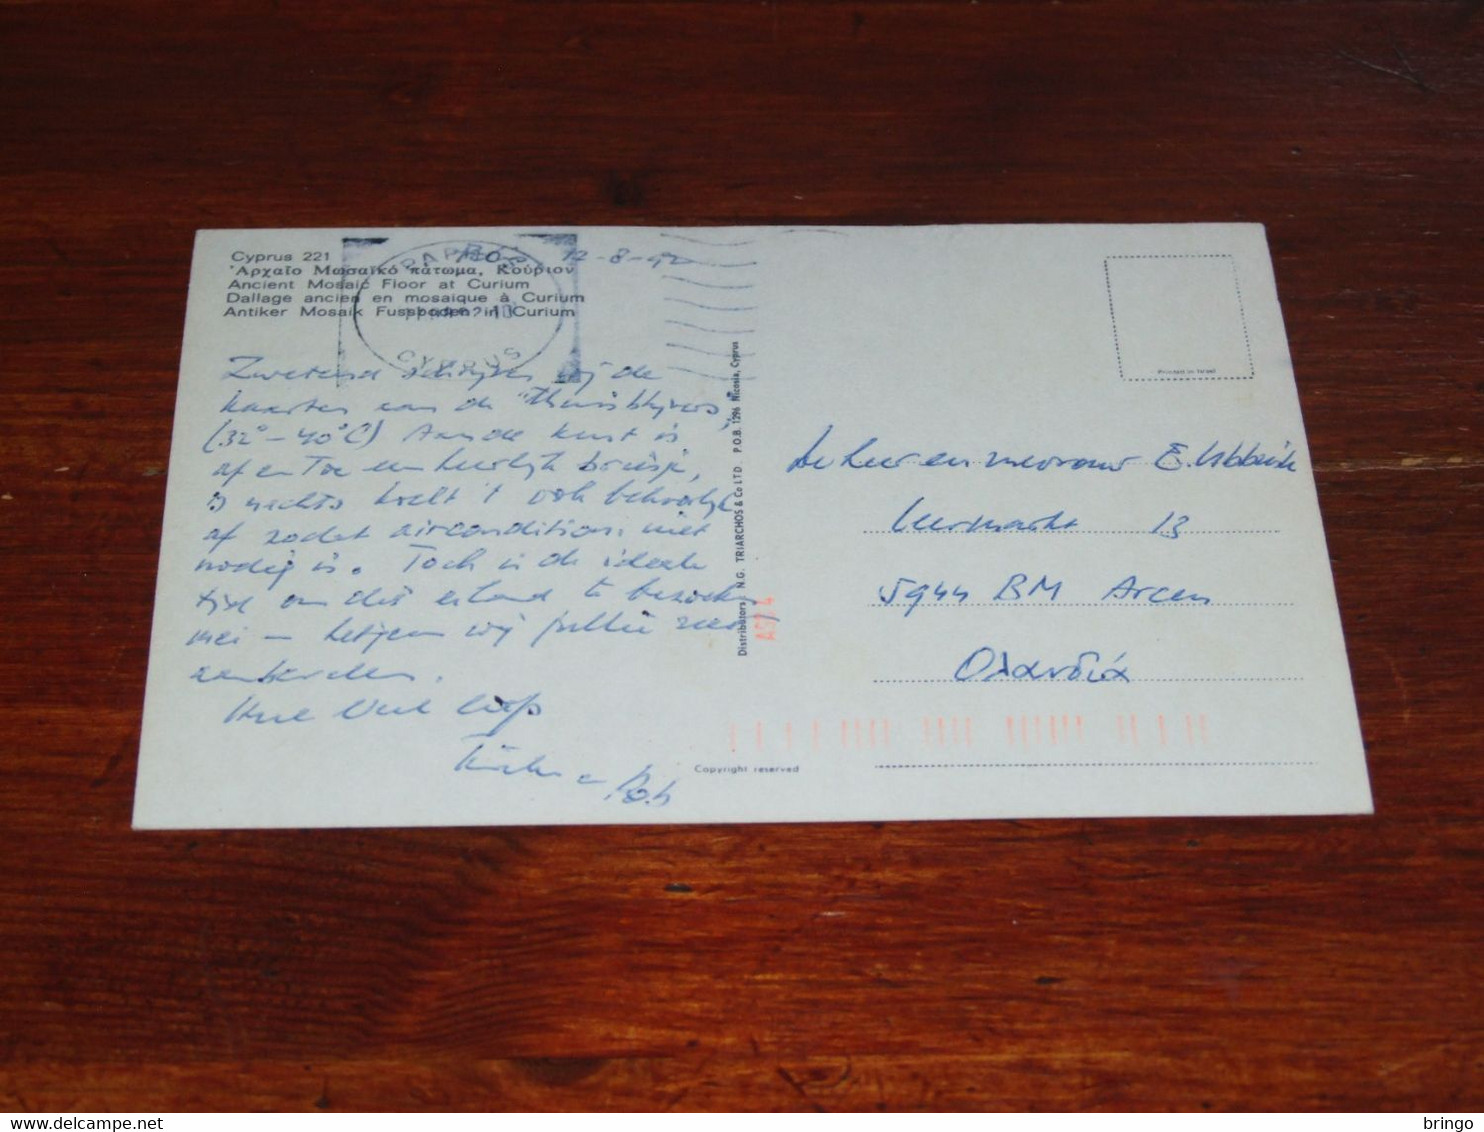 Cyprus 221
'Αρχαῖο Μωσαϊκό πάτωμα, Κούριον
Ancient Mosaic Floor at Curium
Dallage ancien en mosaïque à Curium
Antiker Mosaik Fussboden in Curium
PAPHOS
CYPRUS
12-8-92
Zwetend schrijven wij de
kaarten aan de "thuisblijvers"
(32° - 40°C) Aan de kust is
af en toe een heerlijk briesje,
's nachts koelt 't ook behoorlijk
af zodat airconditioning niet
nodig is. Toch is de ideale
tijd om dit eiland te bezoeken
mei - hebben wij
Veel liefs
en Rob
Distributors: N.G. TRIARCHOS & Co LTD P.O.B. 1296 Nicosia, Cyprus
Copyright reserved
Printed in Israel
de heer en mevrouw E.
Veermarkt 13
5944 BM Arcen
Ολλανδία
delcampe.net
bringo